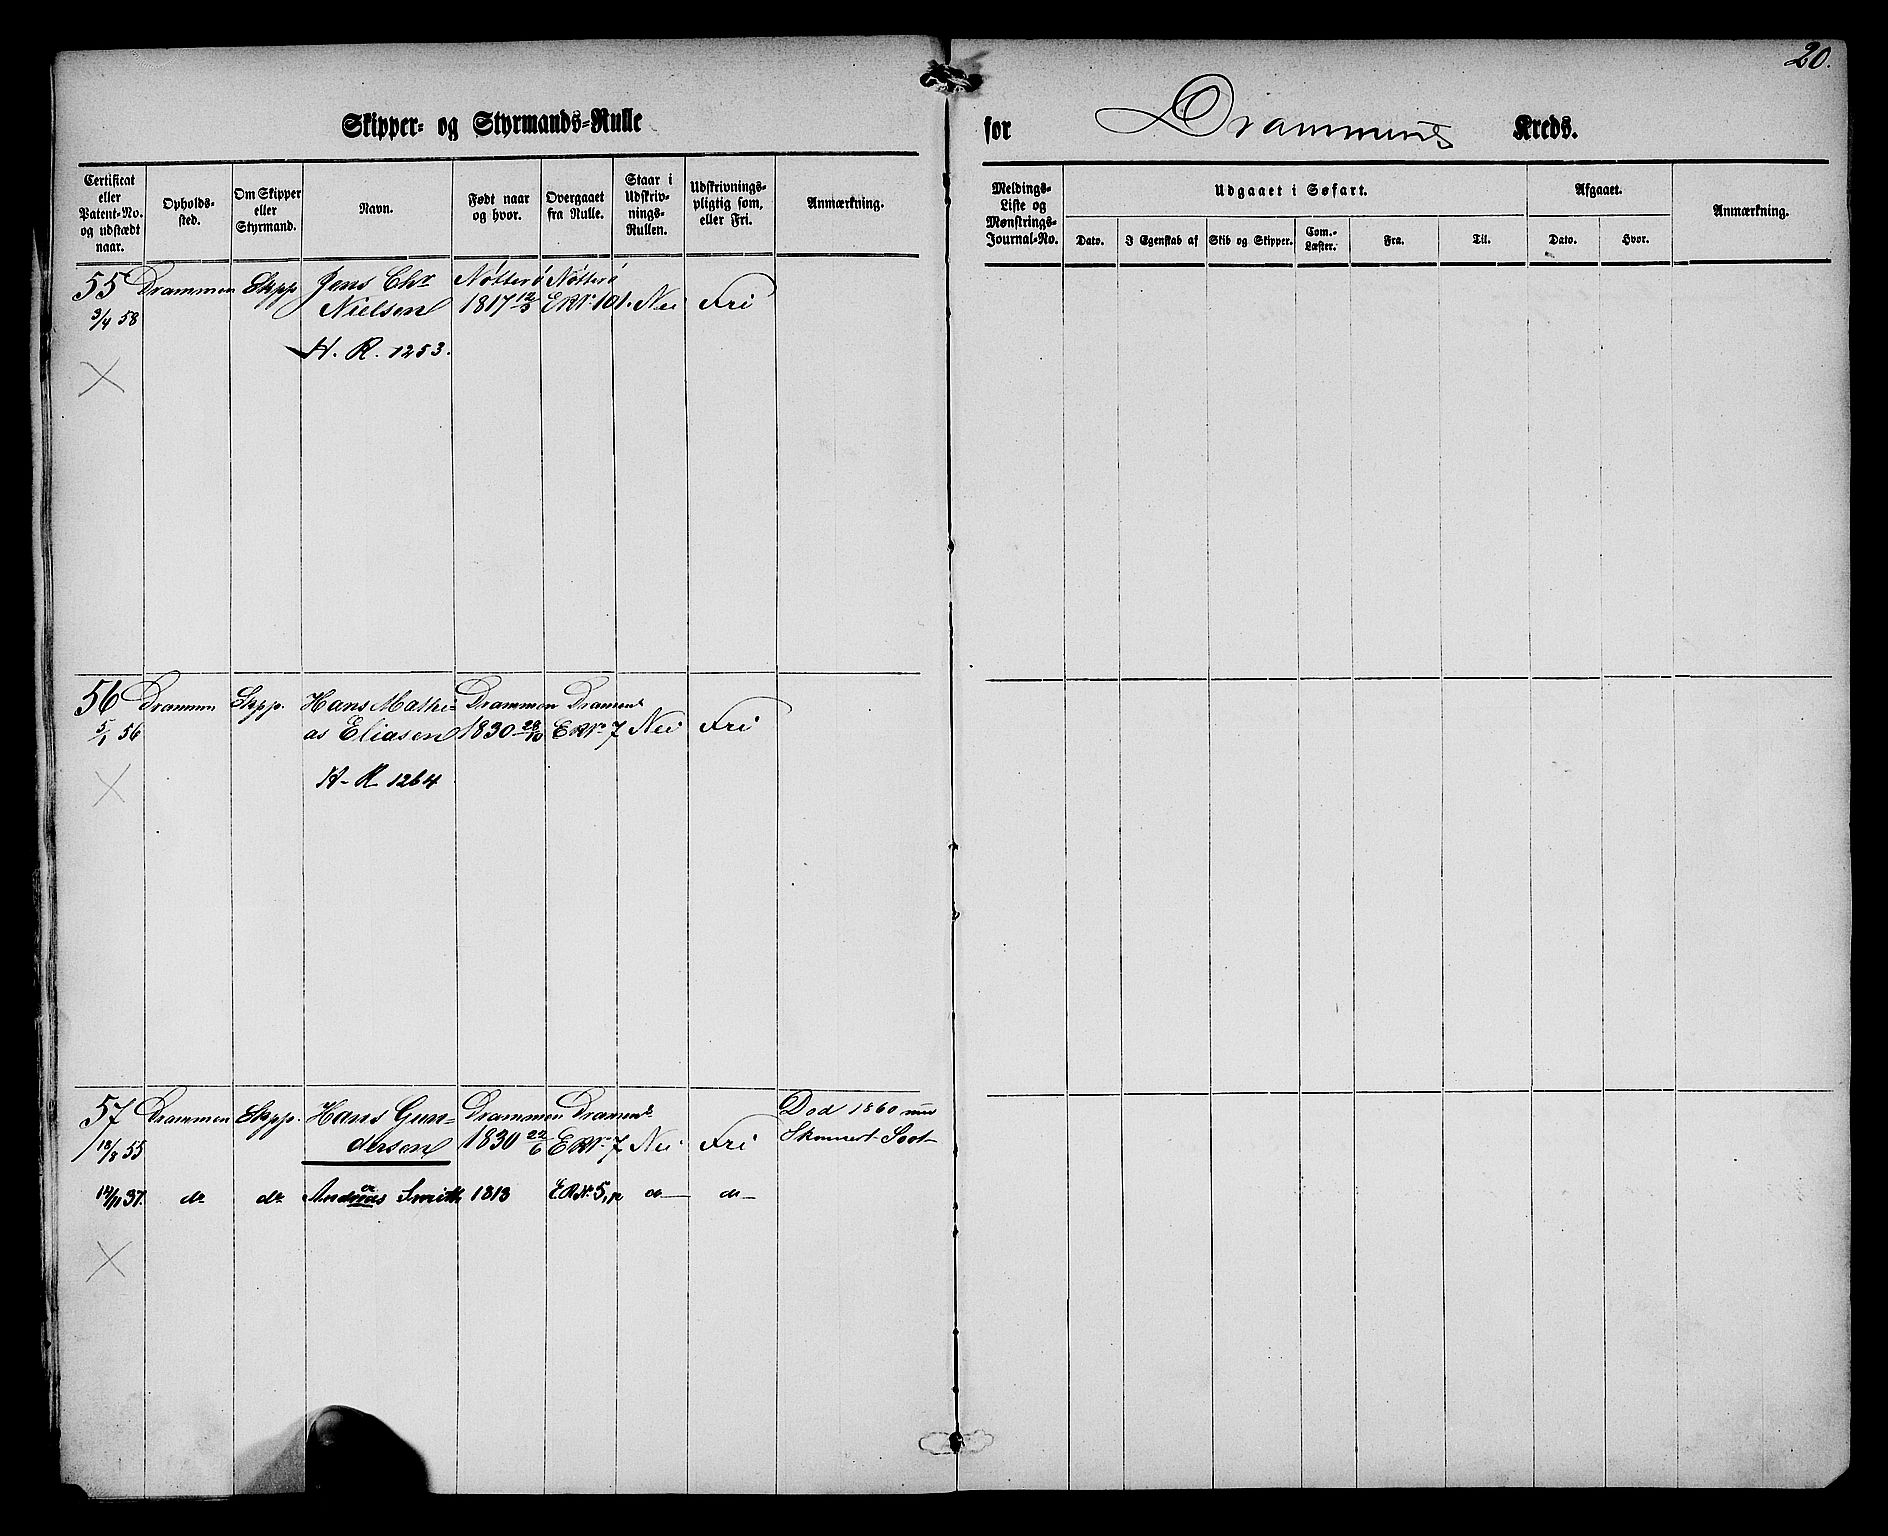 20.
Skipper- og Styrmands-Rulle for Drammens Kreds.
Certificat eller Patent-No. og udstædt naar.
Opholds-sted.
Om Skipper eller Styrmand.
Navn.
Født naar og hvor.
Overgaaet fra Rulle.
Staar i Udskriv-nings-Rullen.
Udskrivnings-pligtig som, eller Fri.
Anmærkning.
Meldings-Liste og Mønstrings-Journal-No.
Udgaaet i Søfart.
Dato.
I Egenskab af
Skib og Skipper.
Com.-Læster.
Fra.
Til.
Afgaaet.
Dato.
Hvor.
Anmærkning.
55 Drammen Skpp Jens Chr Nøtterö Nøtterö
3/4 58 Nielsen 1817 12/3 ERNo 101. Nei Fri
H. R. 1253.
56 Drammen Skpp. Hans Mathi- Drammen Dramens
5/1 56 as Eliasen 1830 28/10 ERNo 7 Nei Fri
H-R 1264
57 Drammen Skpp. Hans Gun- Drammen Dramens Död 1860
18/8 55 dersen 1830 22/6 ERNo 7 Nei Fri
12/11 37. do do Andreas Smith 1813 ERNo 5, do do